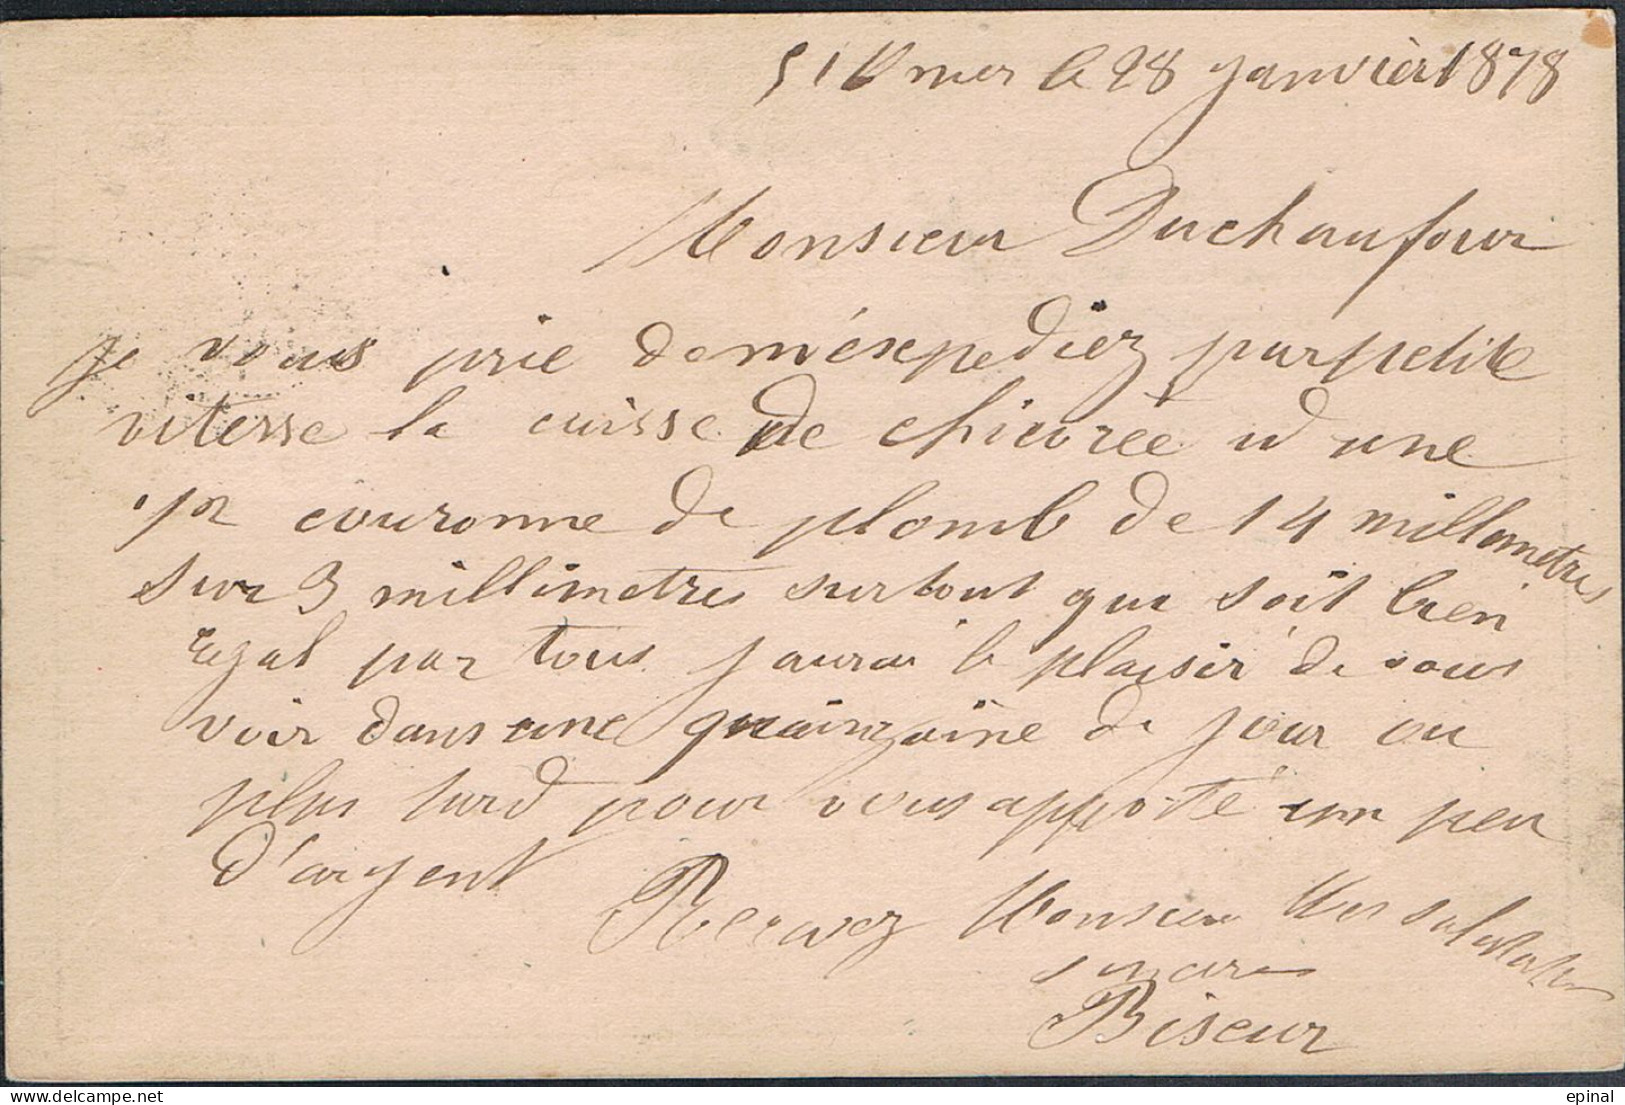 St Omer le 28 janvièr 1878
Monsieur Duchaufour
je vous prie de méxpediez par petite
vitesse la caisse de chicorée d une
couronne de plomb de 14 millemetres
sur 3 millimetres surtout que soit bien
egal par tous j aurai le plaisir de vous
voir dans une quainzaine de jour ou
plus tard pour vous apporté un peu
d'argent
Recevez Monsieur Mes salutations
sincères
Biseur
epinal